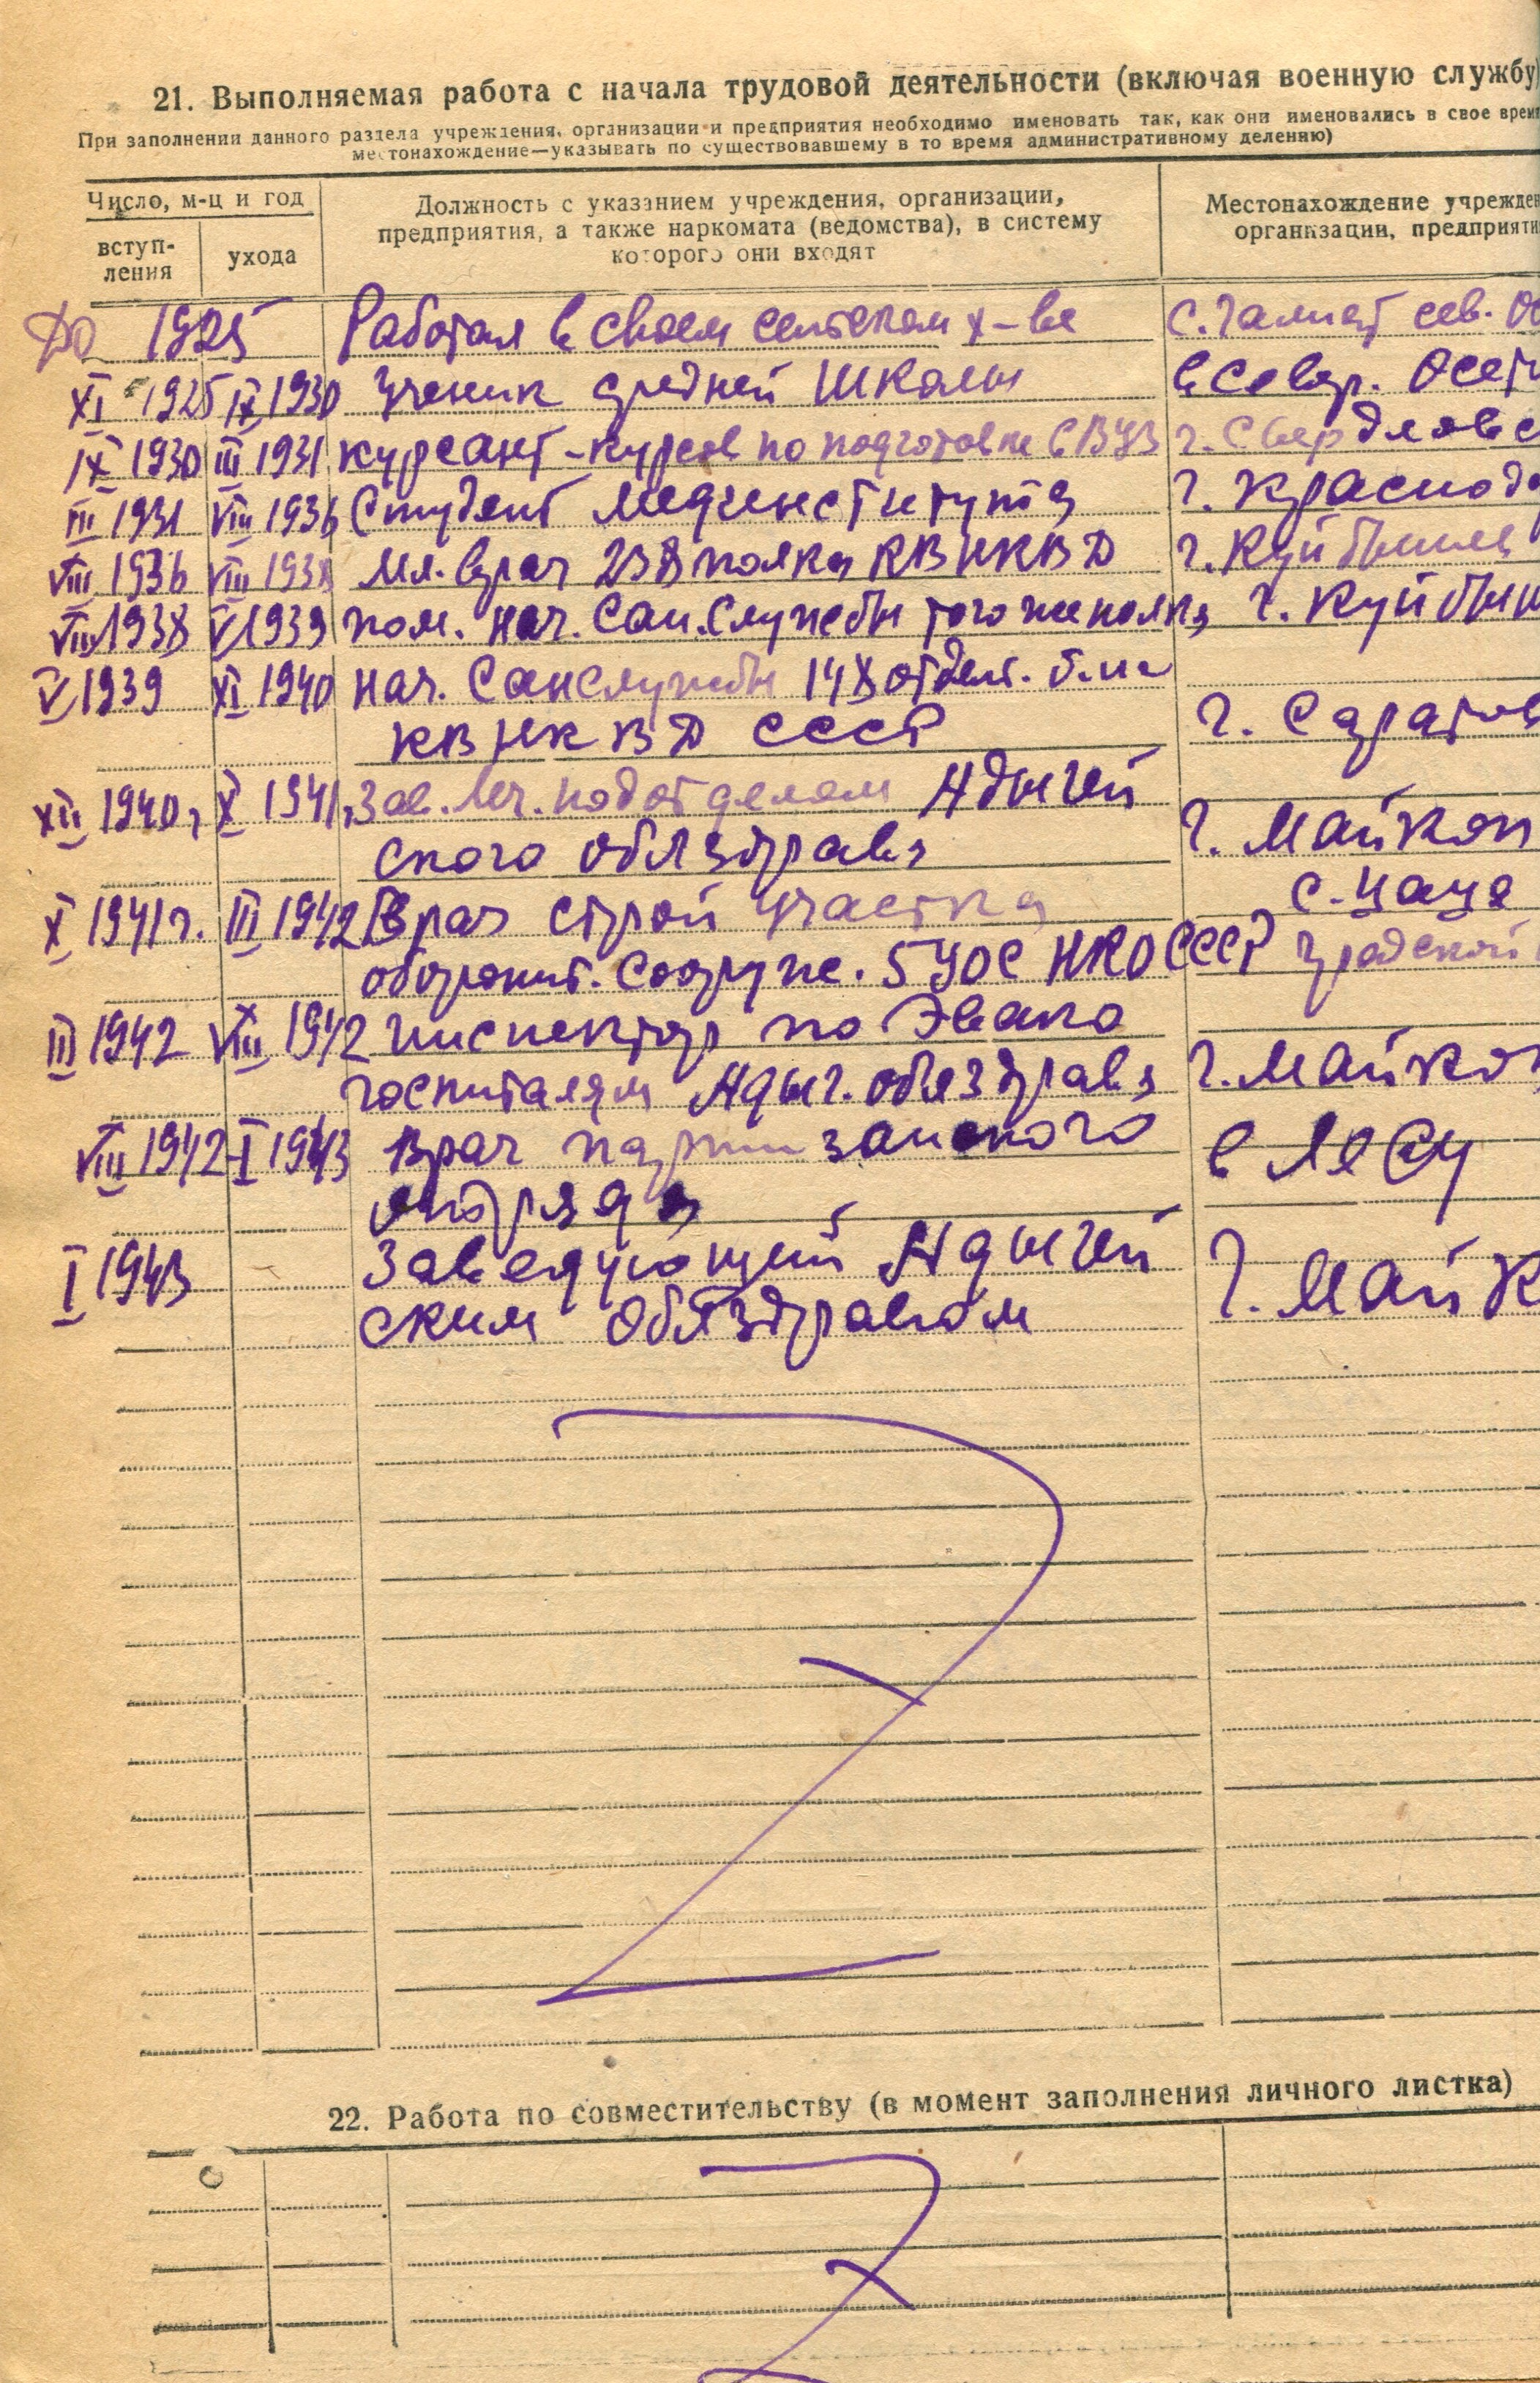 21. Выполняемая работа с начала трудовой деятельности (включая военную службу)
При заполнении данного раздела учреждения, организации и предприятия необходимо именовать так, как они именовались в свое время
местонахождение—указывать по существовавшему в то время административному делению)
Число, м-ц и год
вступ-
ления
ухода
Должность с указанием учреждения, организации,
предприятия, а также наркомата (ведомства), в систему
которого они входят
Местонахождение учрежден
организации, предприяти
До 1925 Работал в своем сельском х-ве с. Галиат сев. Ос
XI 1925 IX 1930 Ученик средней школы в Север. Осети
IX 1930 III 1931 курсант-курсов по подготовке в ВУЗ г. Свердловс
III 1931 VIII 1936 Студент мединститута г. Краснода
VIII 1936 VIII 1938 Мл. врач 238 полка КВ НКВД г. Куйбышев
VIII 1938 V 1939 пом. нач. Сан. Службы того же полка г. Куйбыш
V 1939 XI 1940 нач. Санслужбы 148 отдел. б-на
КВ НКВД СССР г. Саратов
XII 1940 г X 1941 г Зав. леч. подотделом Адыгей
ского облздрава г. Майкоп
X 1941 г. III 1942 Врач строй участка с. Цаца
оборонит. Сооруж. 5 УОС НКО СССР градской
III 1942 VIII 1942 инспектор по Эвако
госпиталям Адыг. облздрава г. Майкоп
VIII 1942 - I 1943 Врач партизанского в лесу
отряда
I 1943 Заведующий Адыгей
ским облздравом г. Майк
22. Работа по совместительству (в момент заполнения личного листка)